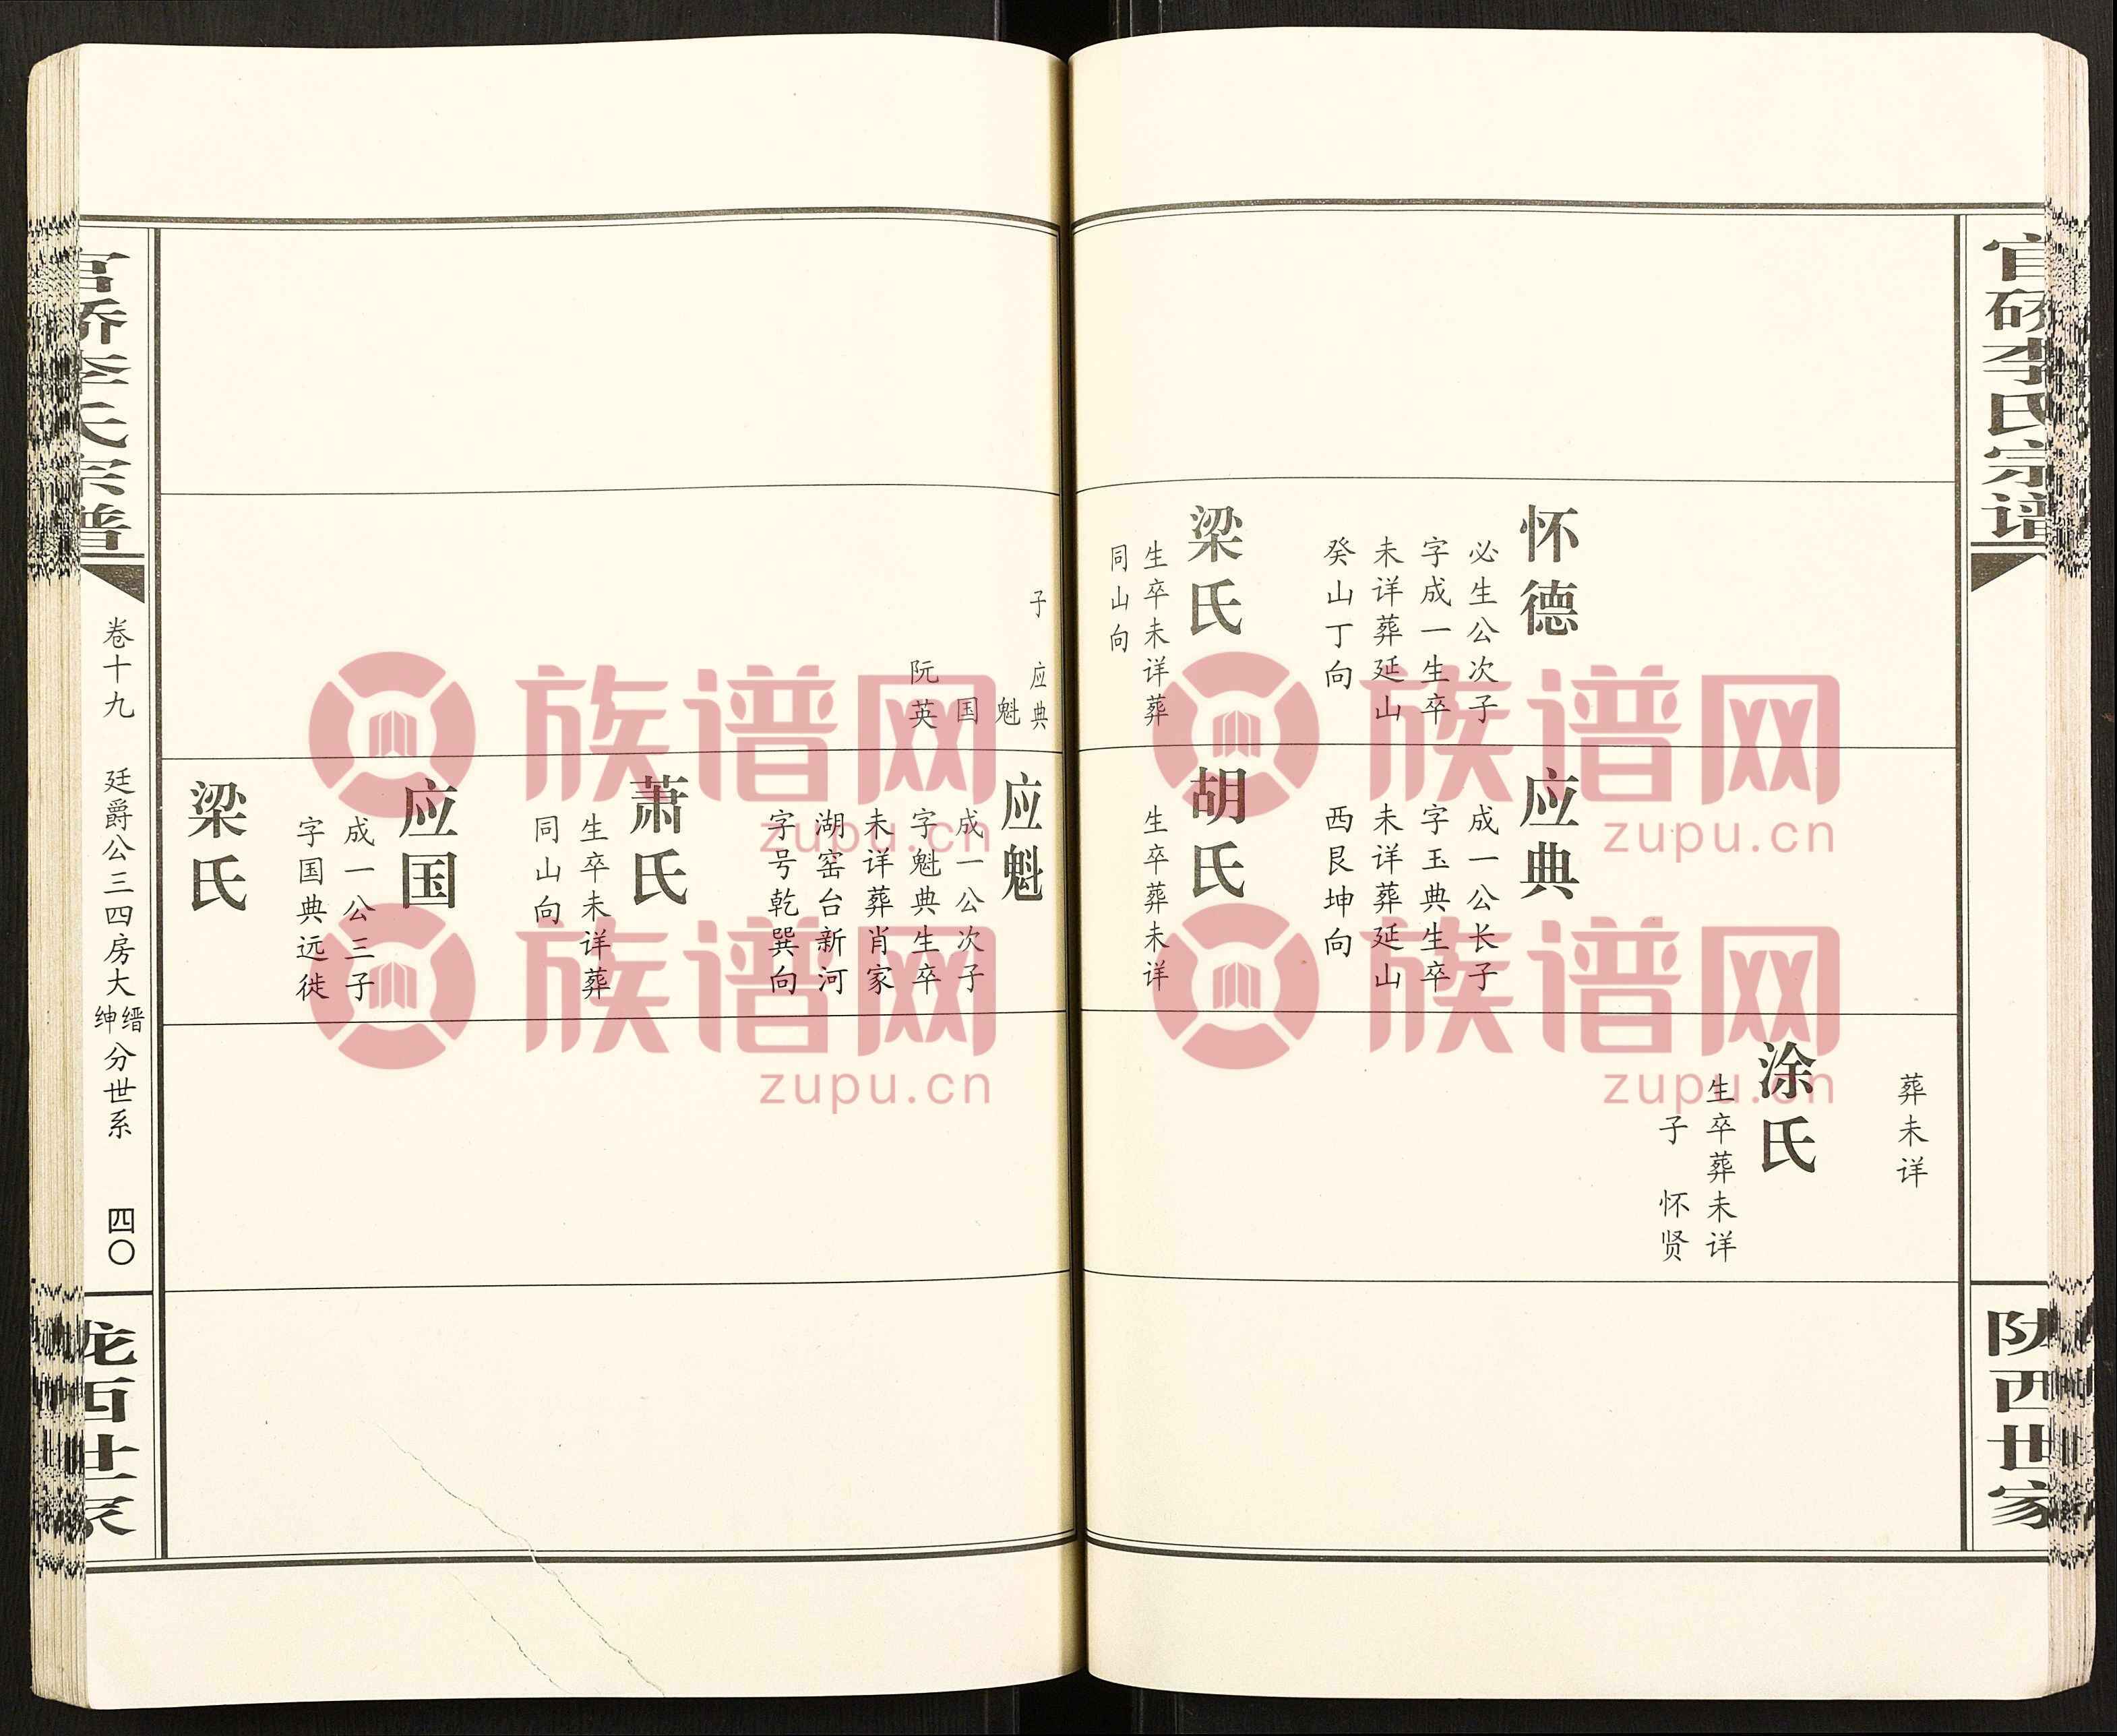 官硚李氏宗谱
陇西世家
怀德
必生公次子
字成一生卒
未详葬延山
癸山丁向
梁氏
生卒未详葬
同山向
应典
成一公长子
字玉典生卒
未详葬延山
西艮坤向
胡氏
生卒葬未详
葬未详
涂氏
生卒葬未详
子 怀贤
子 应典
魁
国
阮英
应魁
成一公次子
字魁典生卒
未详葬肖家
湖窑台新河
字号乾巽向
萧氏
生卒未详葬
同山向
应国
成一公三子
字国典远徙
梁氏
官硚李氏宗谱
卷十九 廷爵公三四房大缙绅分世系 四〇
陇西世家
族谱网
zupu.cn
族谱网
zupu.cn
族谱网
zupu.cn
族谱网
zupu.cn